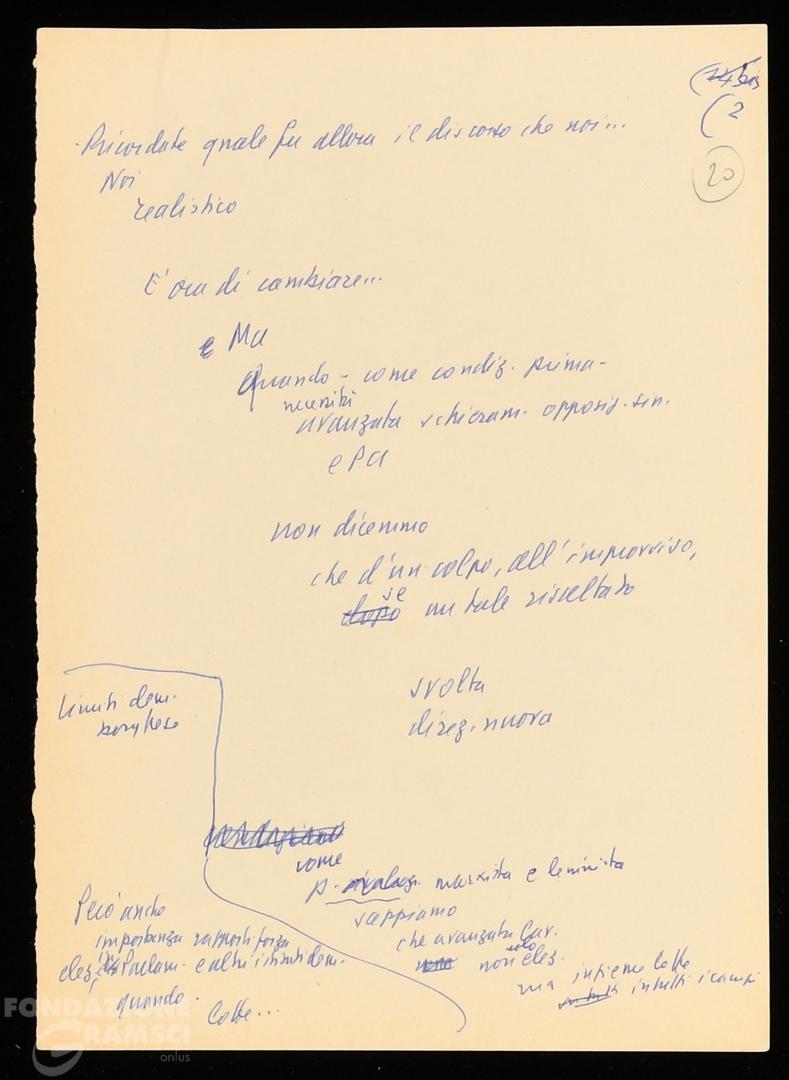 (2
20
Ricordate quale fu allora il discorso che noi...
Noi
realistico
E' ora di cambiare...
e Ma
Quando - come condiz. prima -
necessità
avanzata schieram. opposiz. sin.
e Pci
non dicemmo
che d'un colpo, all'improvviso,
se
dopo un tale risultato
svolta
direz. nuova
Limiti dem.
borghese
come
p. rivoluz. marxista e leninista
sappiamo
che avanzata lav.
non solo elez.
ma insieme lotte
in tutti i campi
Però anche
importanza rapporti forza
elez. Parlam. e altri istituti dem.
quando.
Lotte...
FONDAZIONE
GRAMSCI
onlus